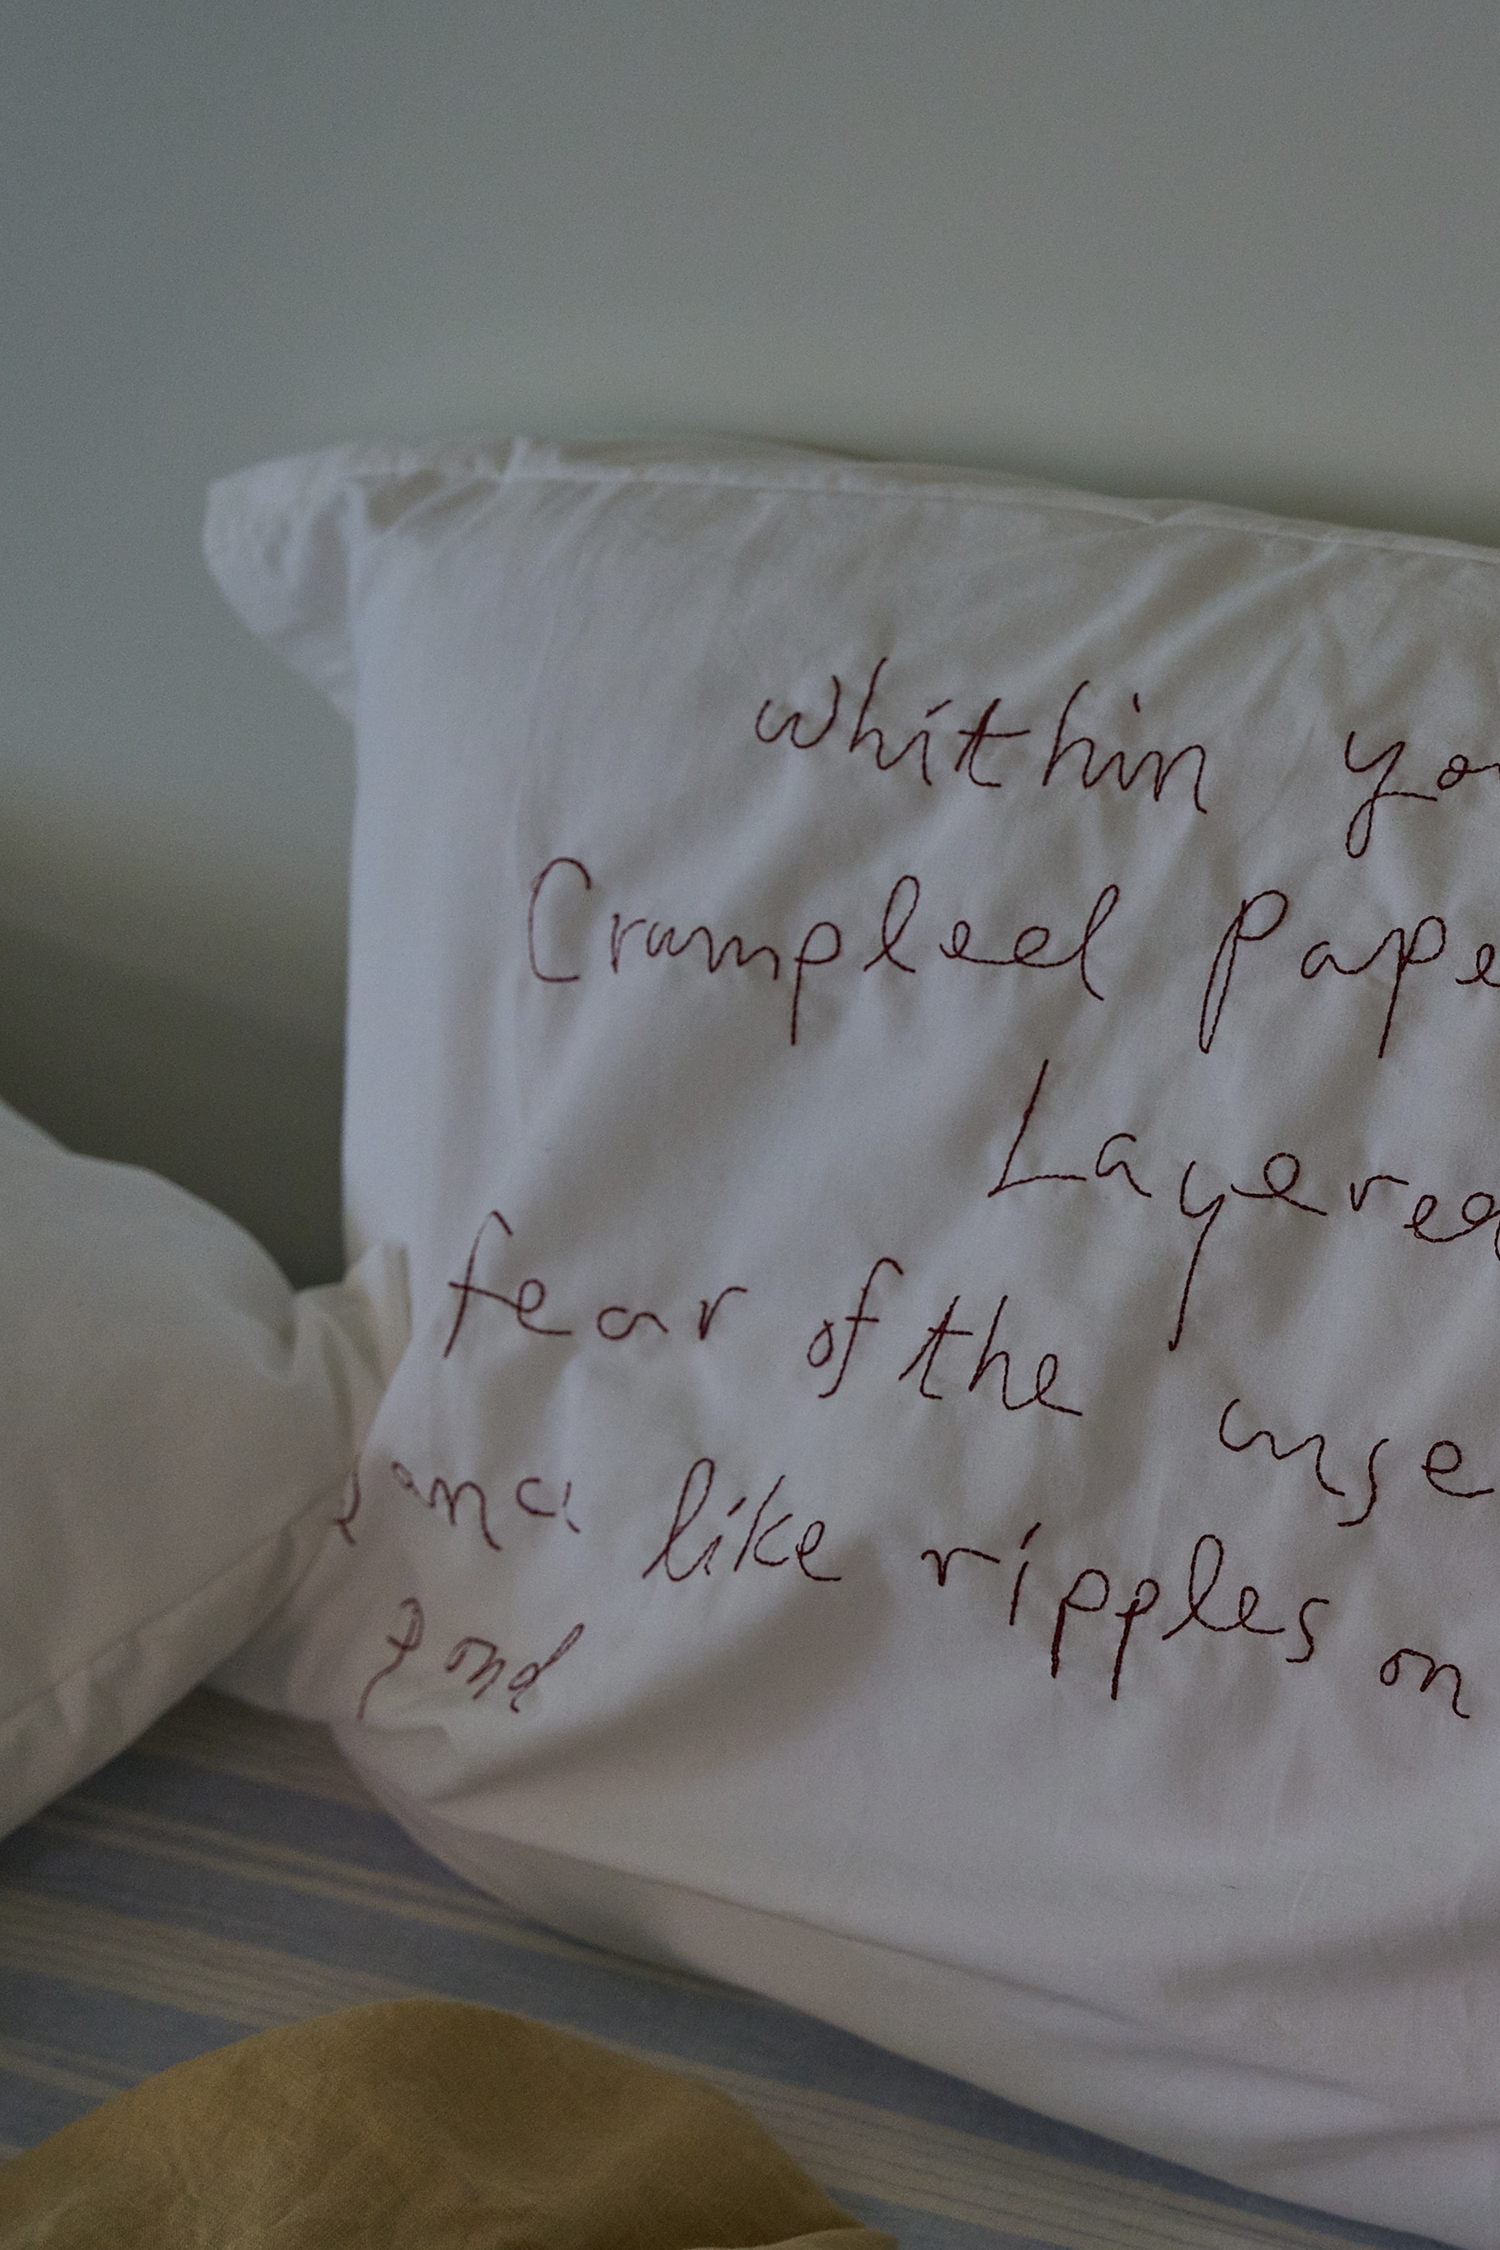 whithin yo
Crumpled Pape
Layered
fear of the unse
Dance like ripples on
Pond